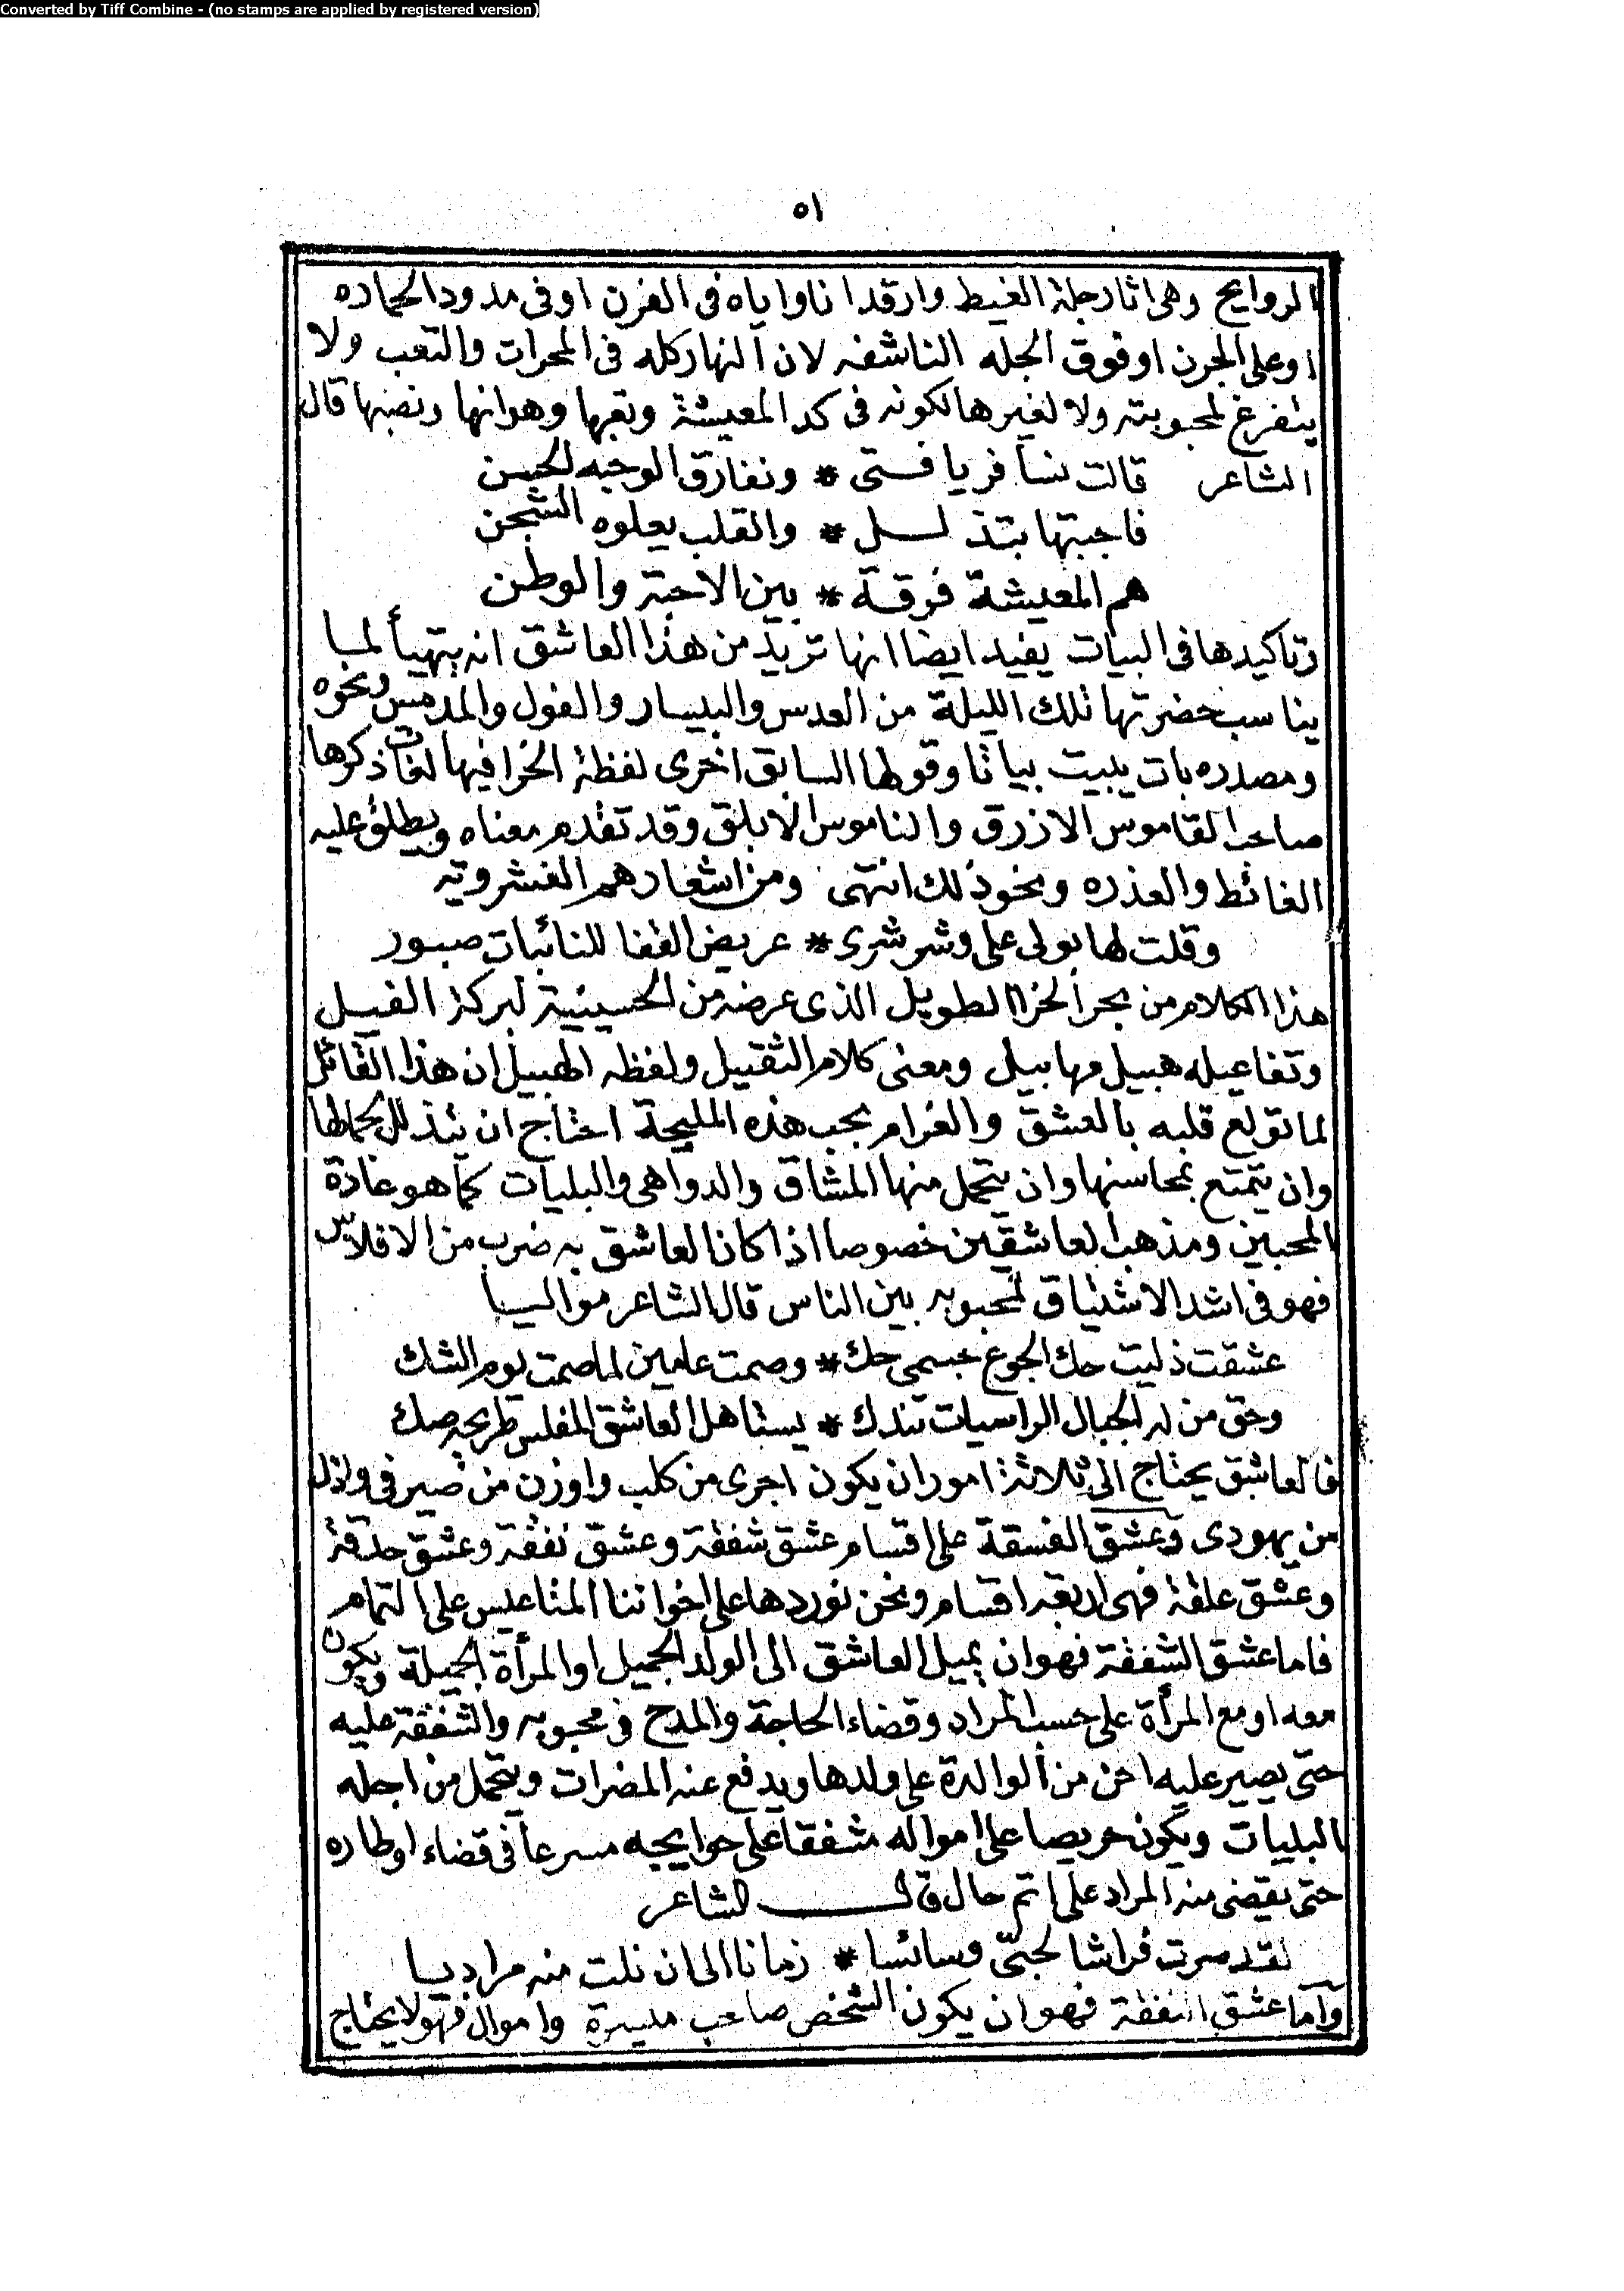 Converted by Tiff Combine - (no stamps are applied by registered version)
٥١
الروايح وهى اثار جلة الغيط وارقد انا واياه فى الفرن او فى مدود الحماده
او على الجرن او فوق الجله الناشفه لان النهار كله فى المحرات والتعب ولا
يتفرغ لمحبوبته ولا لغيرها لكونه فى كد المعيشة وتعبها وهوانها ونصبها قال
الشاعر قالت نسافر يا فتى * ونفارق الوجه الحسن
فاجبتها بتذلل * والقلب يعلوه الشجن
هم المعيشة فرقة * بين الاحبة والوطن
وتاكيدها فى البيات يفيد ايضا انها تريد من هذا العاشق انه يتهيأ لما
يناسب حضرتها تلك الليلة من العدس والبيسار والفول والمدمس ونحوه
ومصدره بات يبيت بياتا وقولها السابق اخرى لفظة الخرا فيها لغات ذكرها
صاحب القاموس الازرق والناموس الابلق وقد تقدم معناه ويطلق عليه
الغائط والعذره ونحو ذلك انتهى ومن اشعارهم الفشروية
وقلت لها بولى على وشرشرى * عريض القفا للنائبات صبور
هذا الكلام من بحر الخرا الطويل الذى عرضه من الحسينية لبركة الفيل
وتفاعيله هبيل مهابيل ومعنى كلام الثقيل ولفظه الهبيل ان هذا القائل
لما تولع قلبه بالعشق والغرام بحب هذه المليحة احتاج ان يتذلل لجمالها
وان يتمتع بمحاسنها وان يتحمل منها المشاق والدواهى والبليات كما هو عادة
المحبين ومذهب العاشقين خصوصا اذا كان العاشق به ضرب من الافلاس
فهو فى اشد الاشتياق لمحبوبه بين الناس قال الشاعر مواليا
عشقت ذليت حك الجوع بجسمى حك * وصمت عامين لما صمت يوم الشك
وحق من له الجبال الراسيات تندك * يستاهل العاشق المفلس طريحه صك
فالعاشق يحتاج الى ثلاثة امور ان يكون اجرى من كلب واوزن من صيرفى واذل
من يهودى وعشق الفسقة على اقسام عشق شفقة وعشق نفقة وعشق حدقة
وعشق علقة فهى اربعه اقسام ونحن نوردها على اخواننا المتاعيس على التمام
فاما عشق الشفقة فهو ان يميل العاشق الى الولد الجميل او المرأة الجميلة ويكون
معه او مع المرأة على حسب المراد وقضاء الحاجة والمدح فى محبوبه والشفقة عليه
حتى يصير عليه احن من الوالدة على ولدها ويدفع عنه المضرات ويتحمل من اجله
البليات ويكون حريصا على امواله مشفقا على حوايجه مسرعا فى قضاء اوطاره
حتى يقضى منه المراد على اتم حال قال الشاعر
لقد صرت فراشا لحبى وسائسا * زمانا الى ان نلت منه مراديا
وأما عشق النفقة فهو ان يكون الشخص صاحب ميسرة واموال فهو لا يحتاج